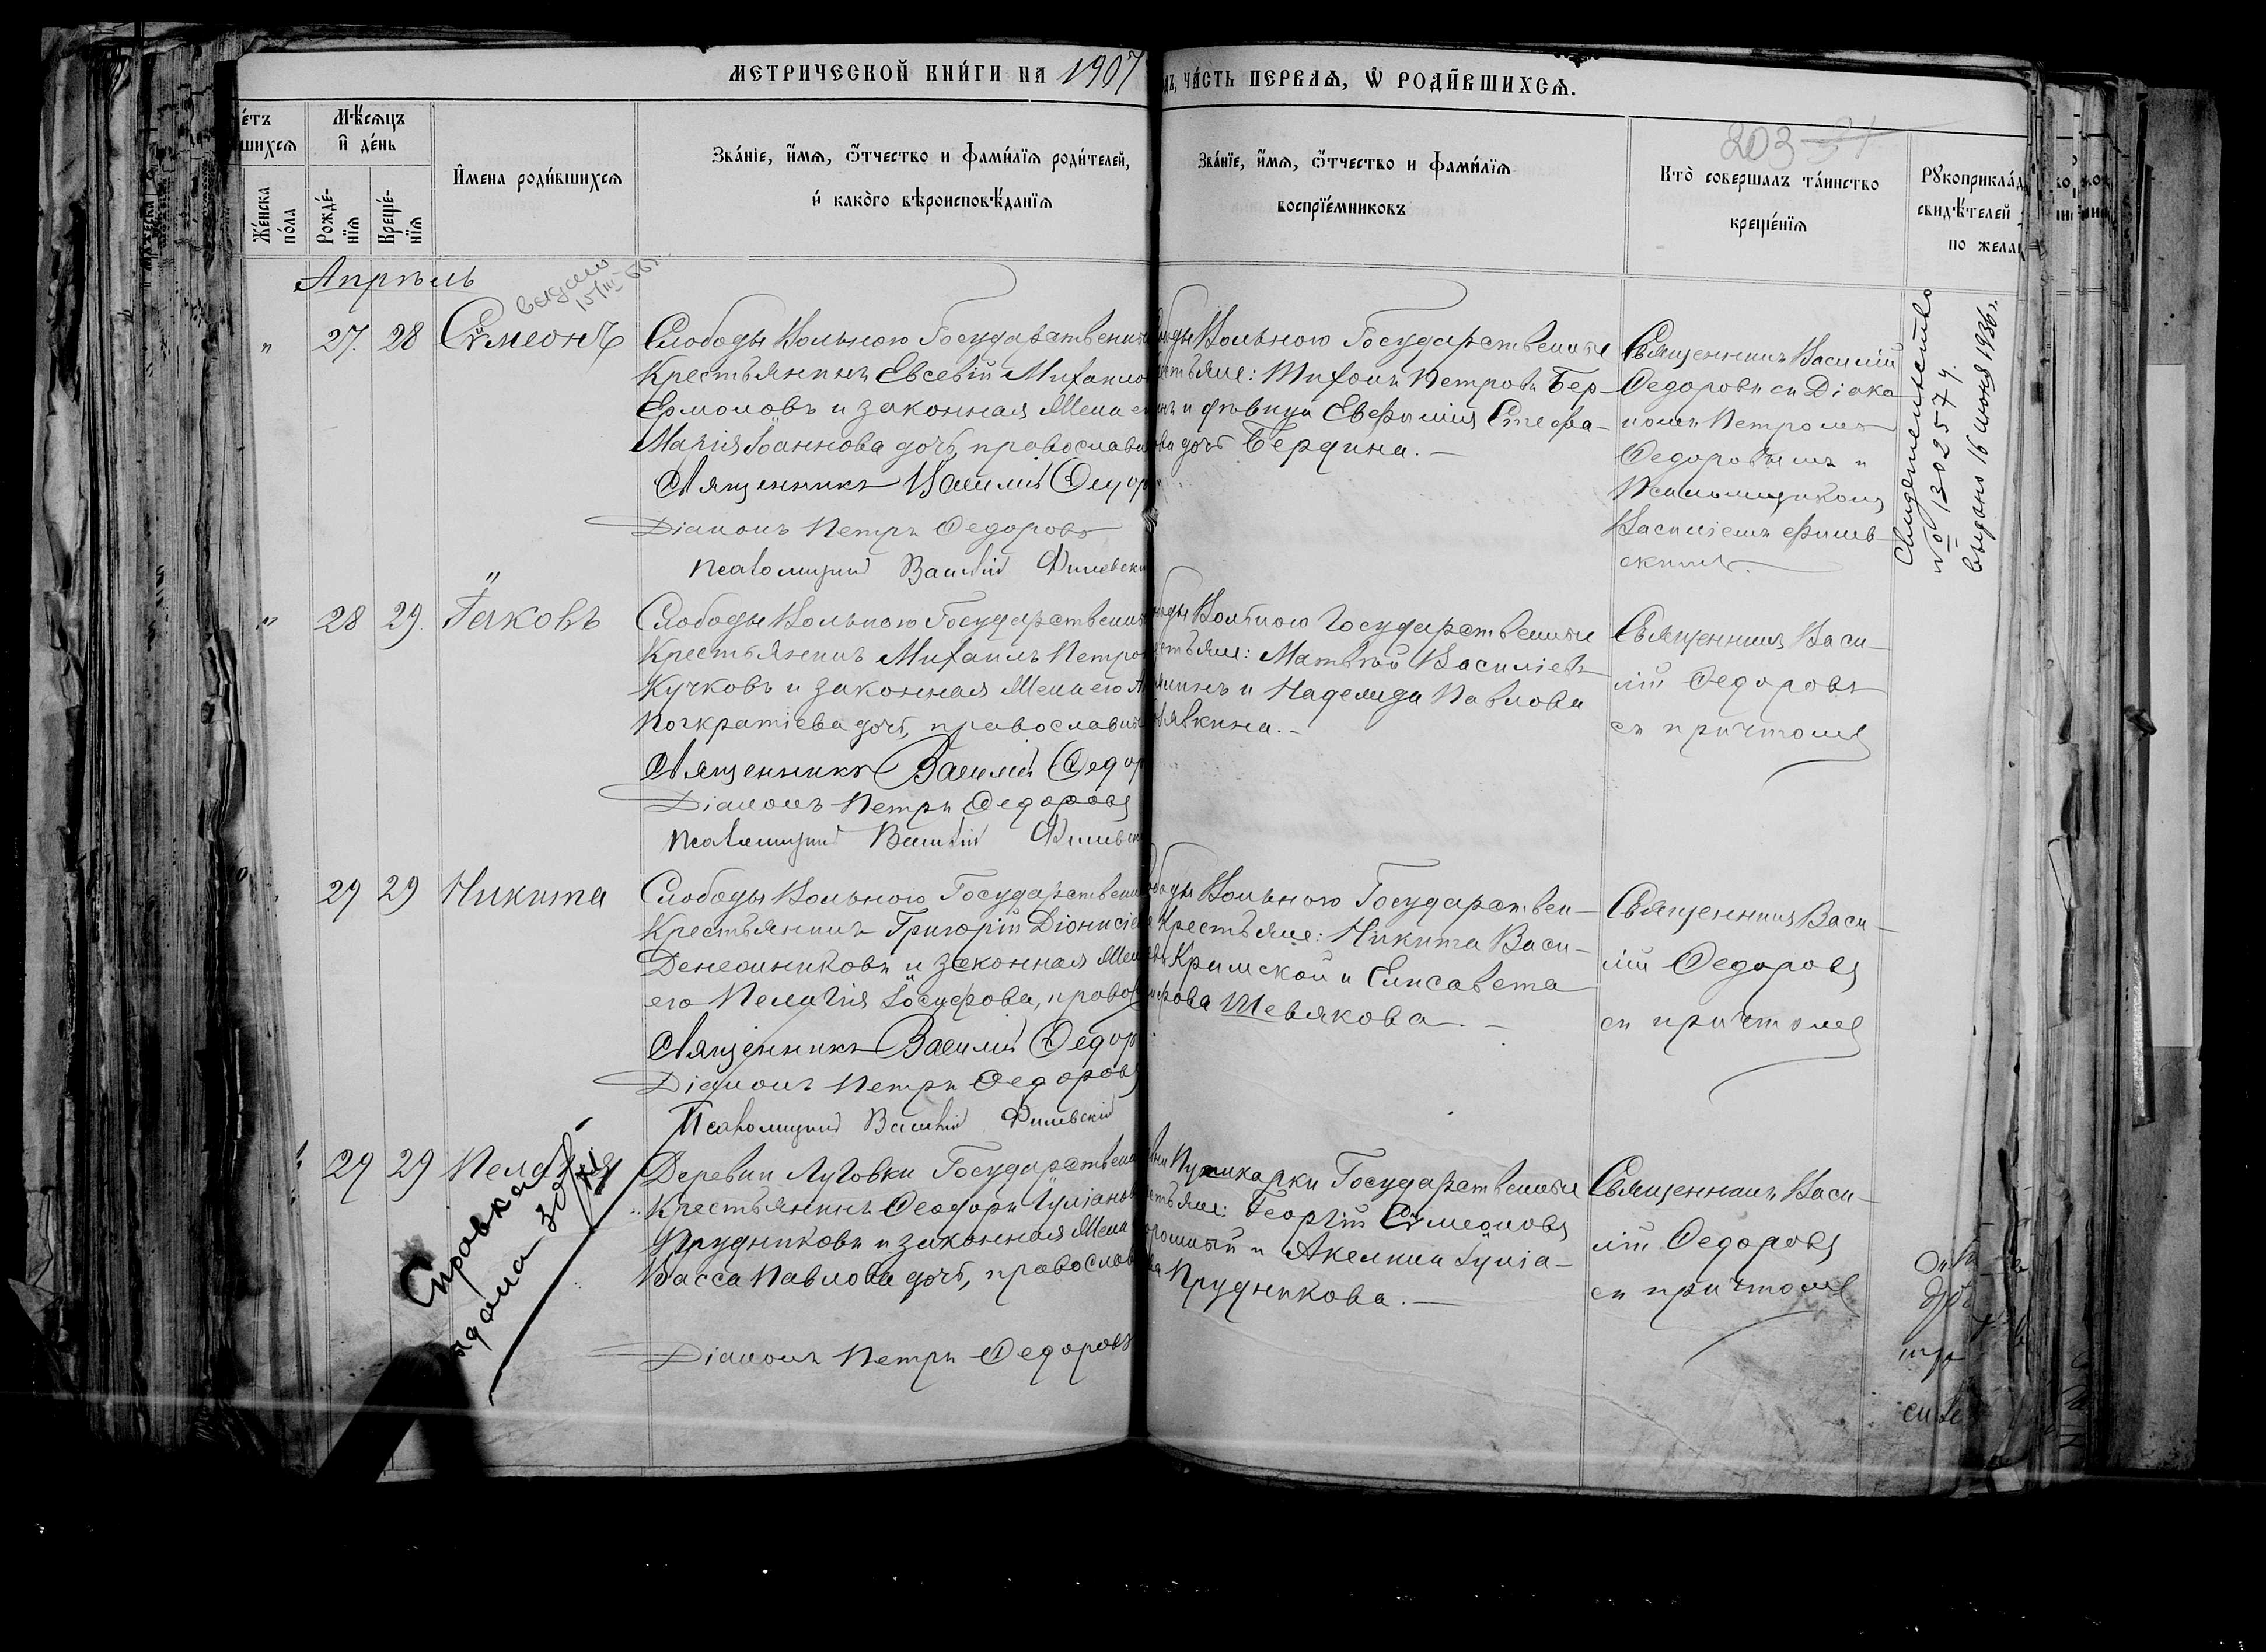 МЕТРИЧЕСКОЙ КНИГИ НА 1907
ЧАСТЬ ПЕРВАЯ, Ѿ РОДИВШИХСЯ.
203
Мѣсяцъ и день
Женска пола
Рожденія
Крещенія
Имена родившихся
Званіе, имя, отчество и фамилія родителей,
и какого вѣроисповѣданія
Званіе, имя, отчество и фамилія
воспріемниковъ
Кто совершалъ таинство
крещенія
Рукоприклад
свидѣтелей
по желан
Апрѣль
выдано
27. 28 Сѵмеонъ
Слободы Вольного Государственн
Крестьянинъ Евсевій Михаило
Ермоловъ и законная Жена е
Марія Іоаннова дочь, православн
Священникъ Василій Ѳедор
Діаконъ Петръ Ѳедоровъ
Псаломщикъ Василій Филевски
ды Вольного Государственные
стьяне: Тихонъ Петровъ Бер-
и дѣвица Евфимія Стефа-
ва дочь Бердина. —
Священникъ Василій
Ѳедоровъ съ Діако
номъ Петромъ
Ѳедоровымъ и
Псаломщикомъ
Василіемъ Филев
скимъ.
Свидетельство
№ 1302574.
выдано 16 июня 1936 г.
28 29. Іаковъ
Слободы Вольного Государственн
Крестьянинъ Михаилъ Петро
Кучковъ и законная Жена его
Панкратіева дочь, православн
Священникъ Василій Ѳедор
Діаконъ Петръ Ѳедоровъ
Псаломщикъ Василій Филевск
ды Вольного Государственные
стьяне: Матвѣй Василіевъ
и Надежда Павлова
Священникъ Васи-
лій Ѳедоровъ
съ причтомъ
29 29 Никита
Слободы Вольного Государственн
Крестьянинъ Григорій Діонисіев
Денесниковъ и законная Жен
его Пелагія Іосифова, правос
Священникъ Василій Ѳедор
Діаконъ Петръ Ѳедоровъ
Псаломщикъ Василій Филевскій
ды Вольного Государствен-
Крестьяне: Никита Васи-
Кримской и Елисавета
фова Шевякова. —
Священникъ Васи-
лій Ѳедоровъ
съ причтомъ
29 29 Пелагія
Справка
Деревни Луговки Государственн
Крестьянинъ Ѳеодоръ Іуліанов
Прудниковъ и законная Жена
Васса Павлова дочь, православ
Діаконъ Петръ Ѳедоровъ
Пушкарки Государственные
стьяне: Георгій Сѵмеоновъ
и Акелина Іуліа-
ва Прудникова. —
Священникъ Васи-
лій Ѳедоровъ
съ причтомъ